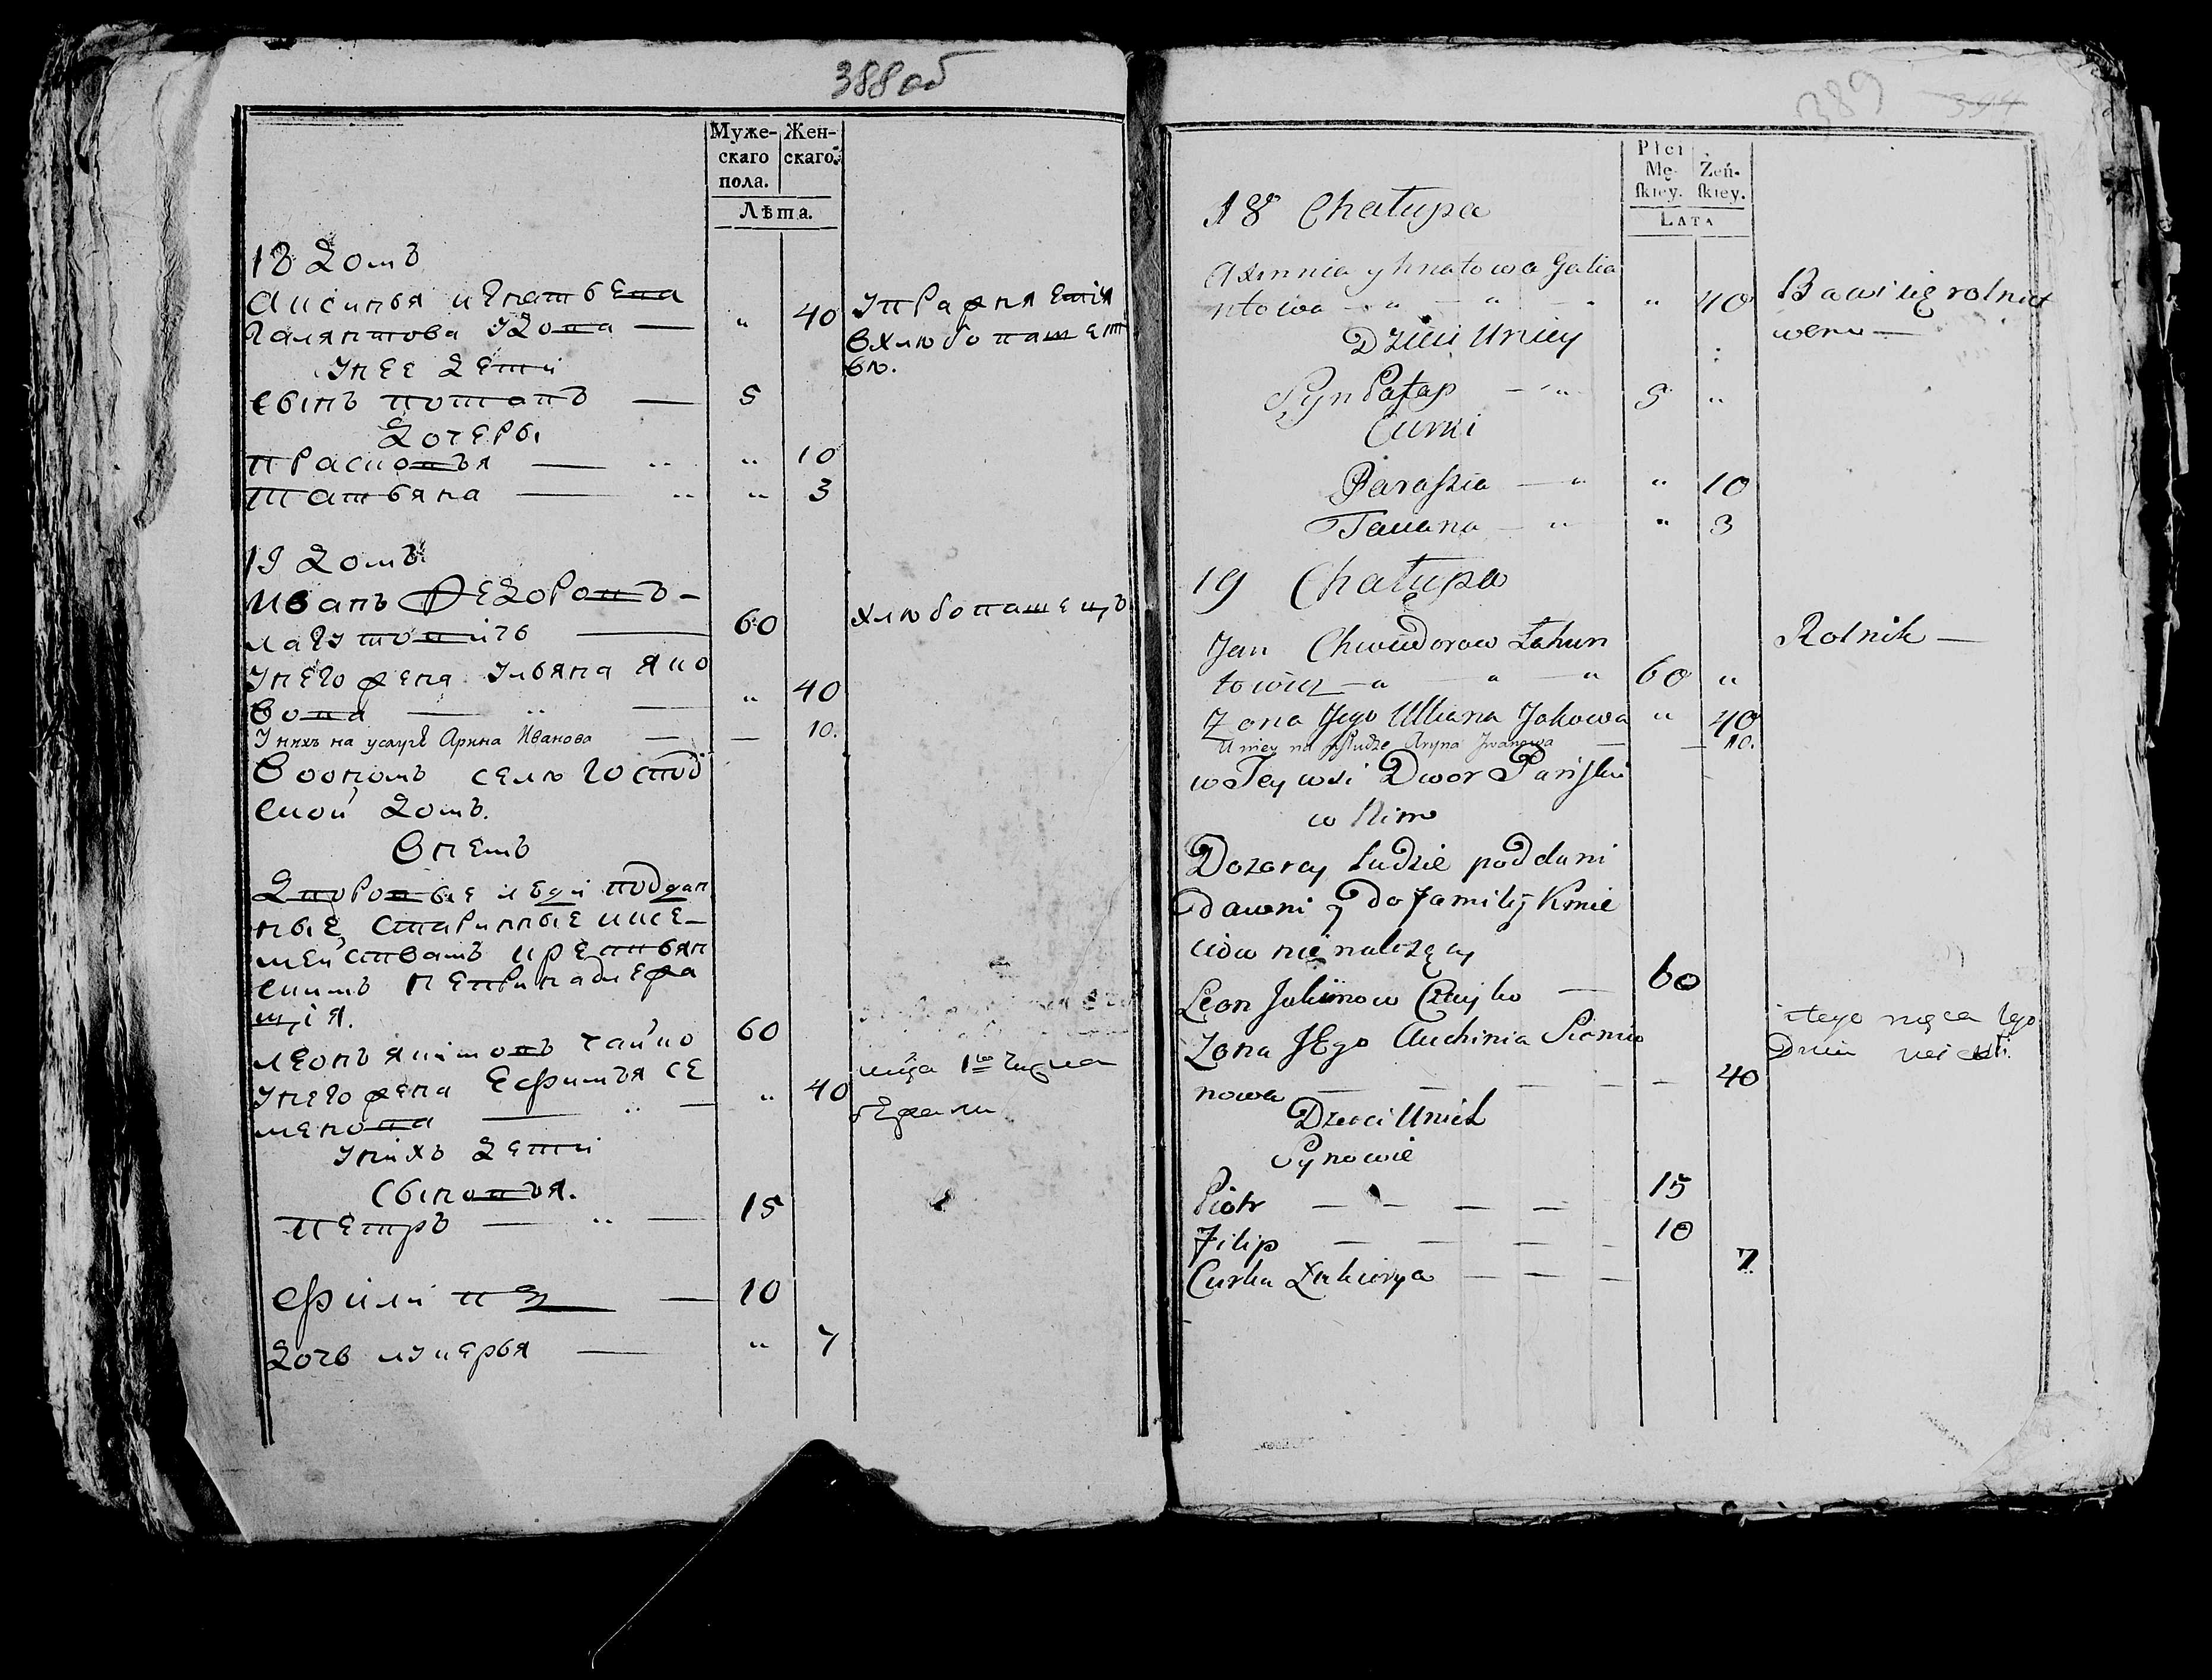 388 об
Муже-
скаго
пола.
Жен-
скаго.
Лѣта.
18 Домъ
Аксинья игнатьева
Галянтова Удова — " 40
упражняется
вхлюбопашест
вю.
Унее дети
Сынъ потапъ — 5
Дочеры
прасковья — " " 10
татьяна — " " 3
19 Домъ
Иванъ Федоровъ —
лагутовичъ — 60
хлюбопашецъ
Унего жена Ульяна Яко
вова — " — " 40
У нихъ на услугѣ Арина Иванова — — 10.
Воономъ селю господ
ской домъ.
Внемъ
Дворовые люди поддан
ные, старинные ксе-
мействамъ крествян
скимъ непринадлежа
щія.
леонъ якимовъ чайко 60
Унего жена Ефимья се
мепова — " — " 40
мца 1го числа
бежали
Унихъ дети
Сыновья.
петръ — " — 15
Филипъ — 10
Дочь лукерья — " 7
389
394
Płci
Mę-
skiey.
Żeń-
skiey.
LATA
18 Chałupa
Axinnia yhnatowa Galia
ntowa " " " 40
Bawi się rolnict
wem —
Dzieci Uniey
Syn Patap — " 5 "
Curki
Paraszka — " " 10
Taciana — " " 3
19 Chałupa
Jan Chwiedorow Łahun
towicz — " " " 60 "
Rolnik —
Żona Jego Ulliana Jakowa " 40
U niey na usłudze Aryna Jwanowa — — 10.
w Tey wsi Dwor Pański
w Nim
Dozorcy Ludzie poddani
dawni y do familij Kmie
ciow nie należący
Leon Jakimow Czayko — 60
Żona JEgo Auchimia Siemio
nowa — — — — — 40
tego
Dnia
Dzieci Unich
Synowie
Piotr — — — — 15
Filip — — — — 10
Curka Łukierya — — — 7